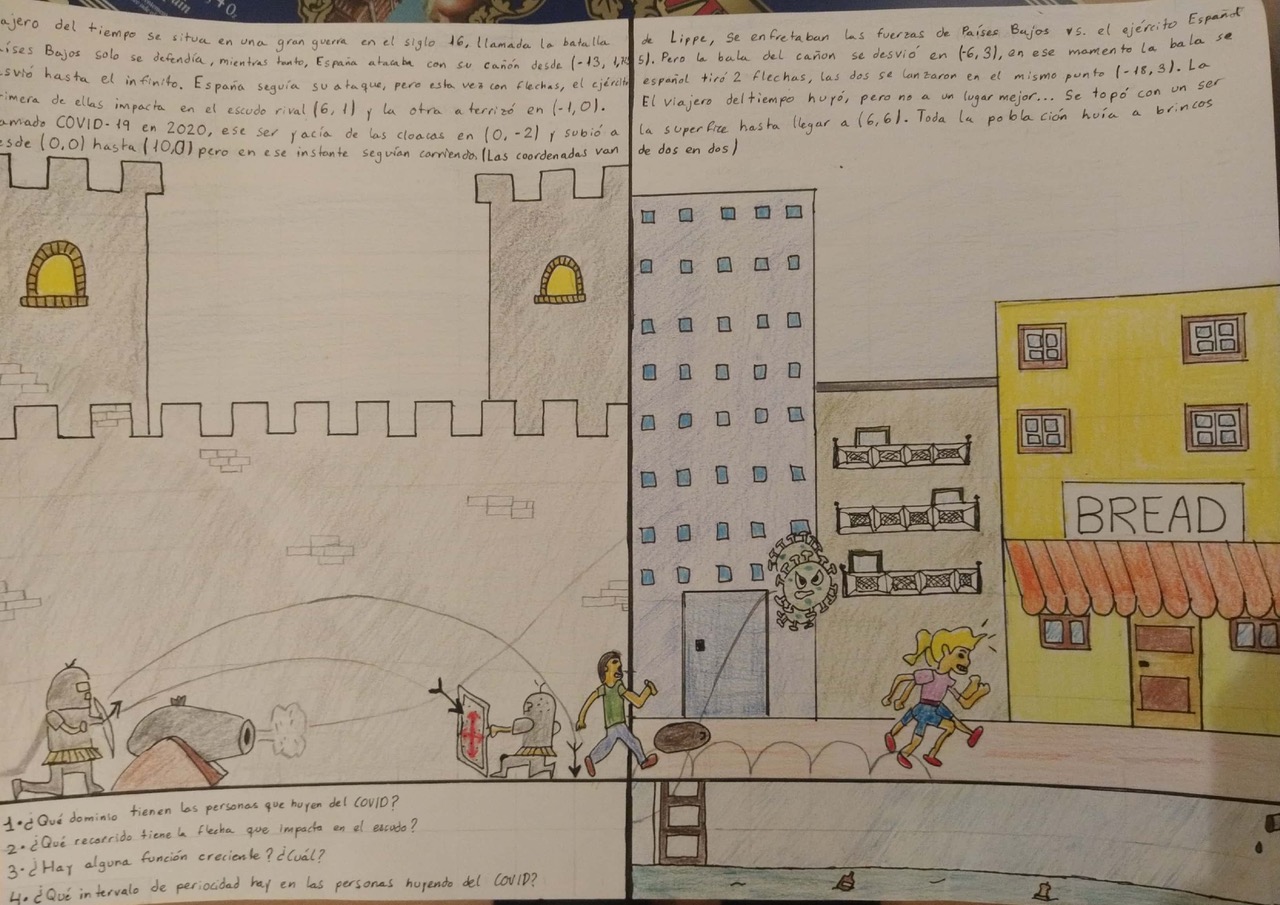 ajero del tiempo se situa en una gran guerra en el siglo 16, llamada la batalla de Lippe, se enfretaban las fuerzas de Países Bajos vs. el ejército Español
aíses Bajos solo se defendía, mientras tanto, España atacaba con su cañón desde (-13, 1,75). Pero la bala del cañon se desvió en (-6,3), en ese momento la bala se
svió hasta el infinito. España seguía su ataque, pero esta vez con flechas, el ejército español tiró 2 flechas, las dos se lanzaron en el mismo punto (-18,3). La
rimera de ellas impacta en el escudo rival (6,1) y la otra aterrizó en (-1,0). El viajero del tiempo huyó, pero no a un lugar mejor... Se topó con un ser
amado COVID-19 en 2020, ese ser yacía de las cloacas en (0,-2) y subió a la superfice hasta llegar a (6,6). Toda la población huía a brincos
esde (0,0) hasta (10,0) pero en ese instante seguían corriendo. (Las coordenadas van de dos en dos)
BREAD
1.¿Qué dominio tienen las personas que huyen del COVID?
2.¿Qué recorrido tiene la flecha que impacta en el escudo?
3.¿Hay alguna función creciente? ¿Cuál?
4.¿Qué intervalo de periocidad hay en las personas huyendo del COVID?